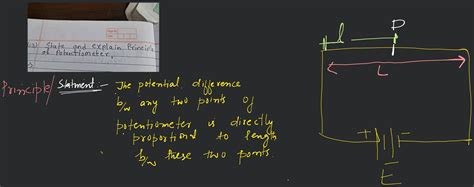 State and explain Principle
of Potentiometer.
Principle/ Statment :- The potential difference
b/w any two points of
potentiometer is directly
proportional to length
b/w these two points.
P
l
L
+ -
E